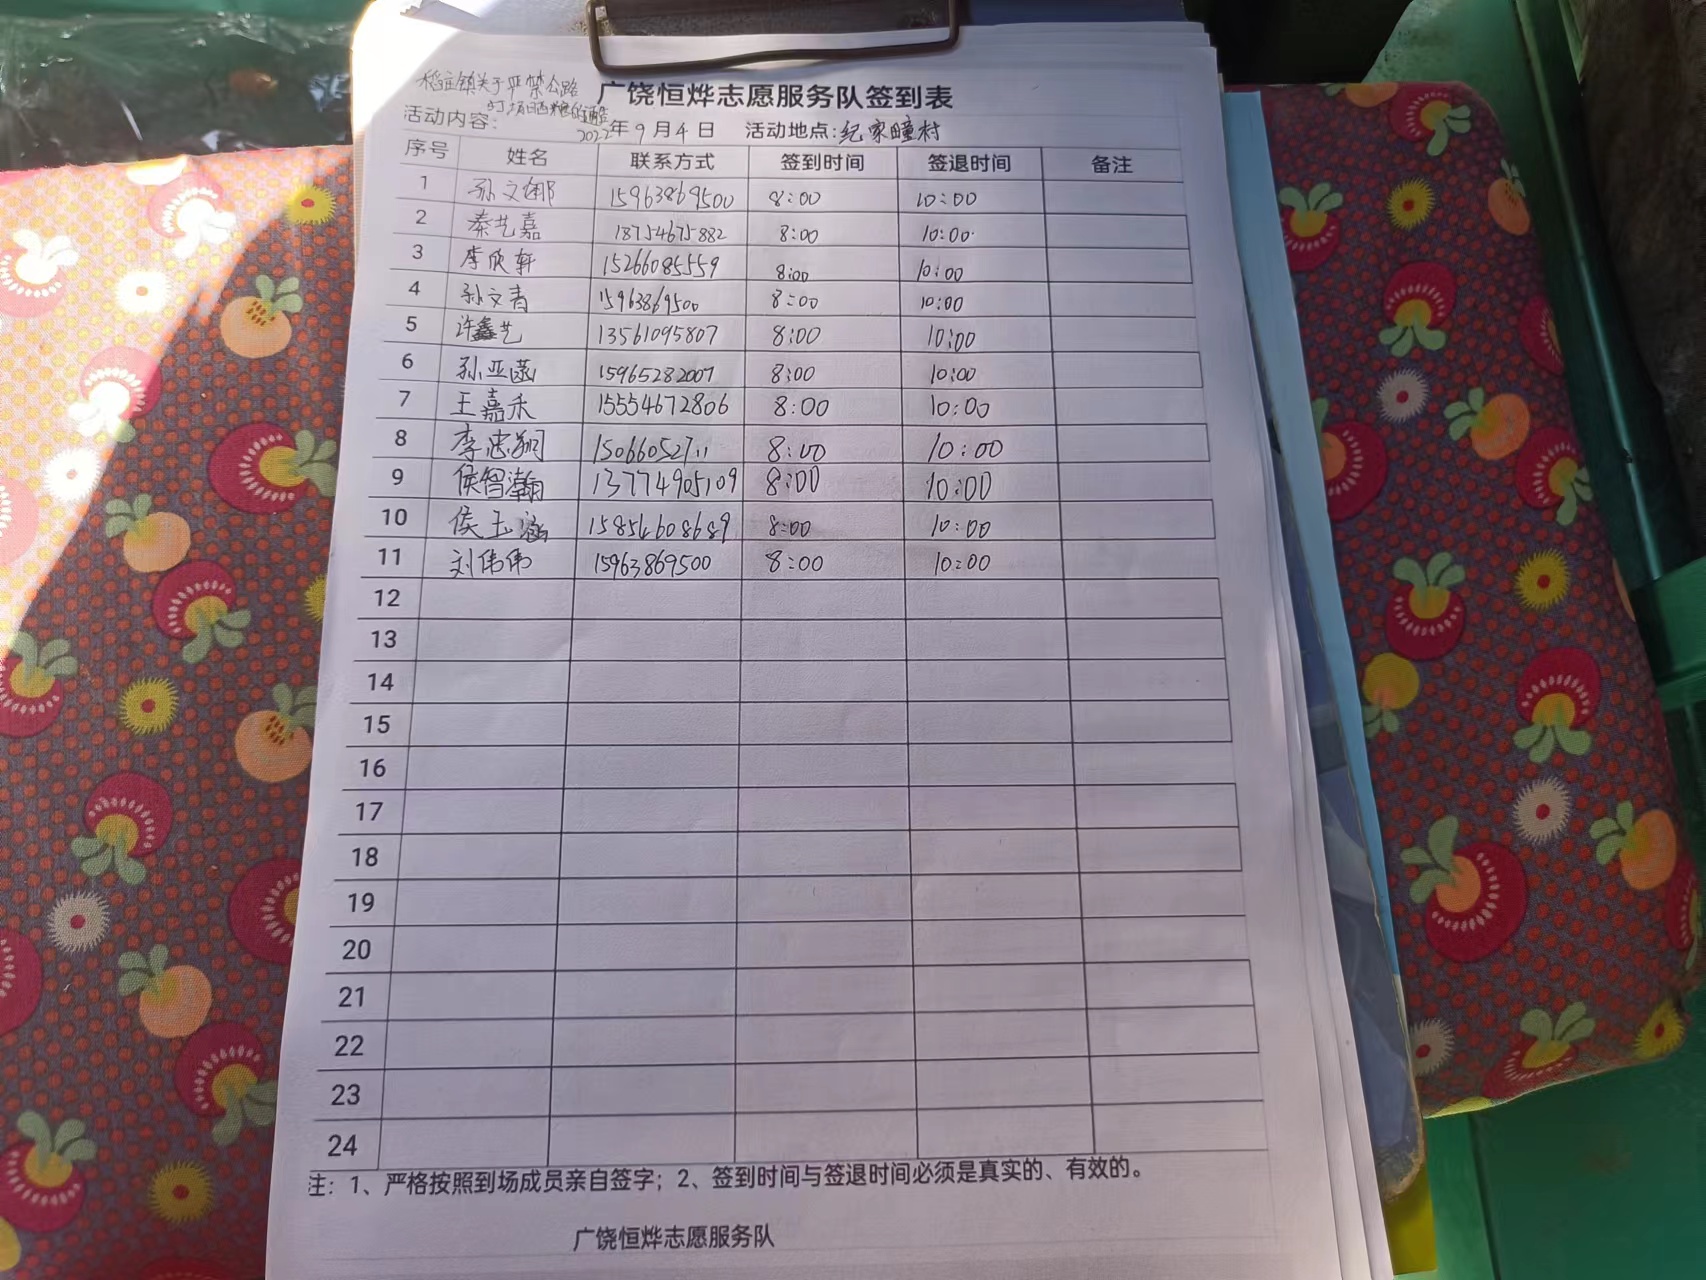 广饶恒烨志愿服务队签到表
稻庄镇关于严禁公路
打场晒粮的通告
活动内容：
2022年9月4日 活动地点:纪家疃村
序号 姓名 联系方式 签到时间 签退时间 备注
1 孙文娜 15963869500 8:00 10:00
2 秦艺嘉 18754675882 8:00 10:00
3 李欣轩 15266085559 8:00 10:00
4 孙文青 15963869500 8:00 10:00
5 许鑫艺 13561095807 8:00 10:00
6 孙亚菡 15965282007 8:00 10:00
7 王嘉禾 15554672806 8:00 10:00
8 李忠翔 15066052711 8:00 10:00
9 侯智瀚 13774905109 8:00 10:00
10 侯玉涵 15854608689 8:00 10:00
11 刘伟伟 15963869500 8:00 10:00
12
13
14
15
16
17
18
19
20
21
22
23
24
注：1、严格按照到场成员亲自签字；2、签到时间与签退时间必须是真实的、有效的。
广饶恒烨志愿服务队